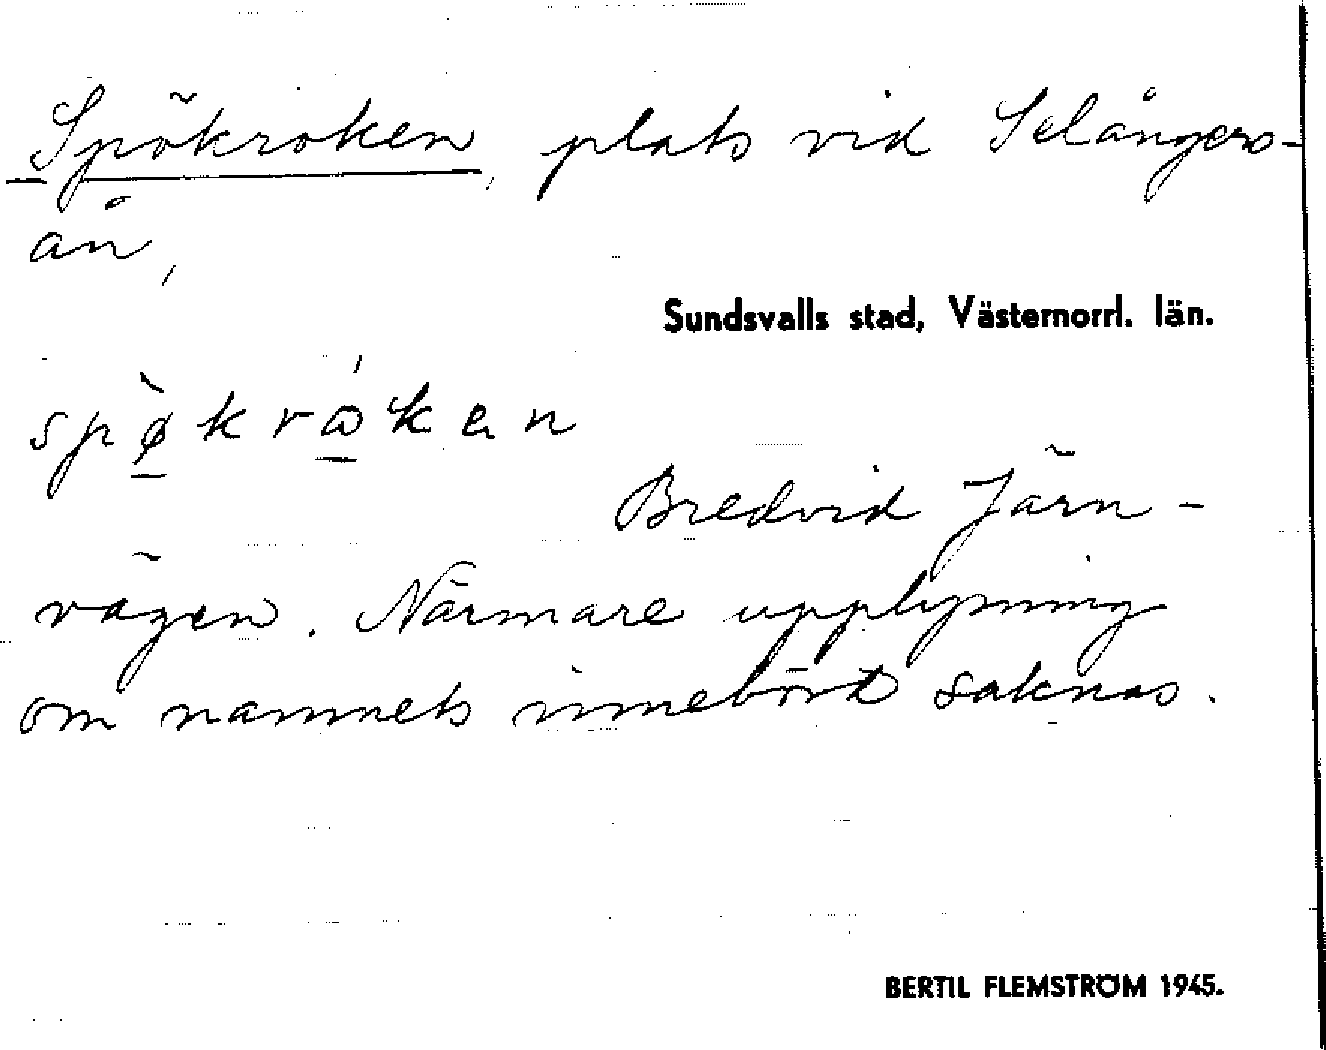 Spökroken, plats vid Selångers-
ån,
Sundsvalls stad, Västernorrl. län.
spø̀krώken
Bredvid Järn-
vägen. Närmare upplysning
om namnets innebörd saknas.
BERTIL FLEMSTRÖM 1945.